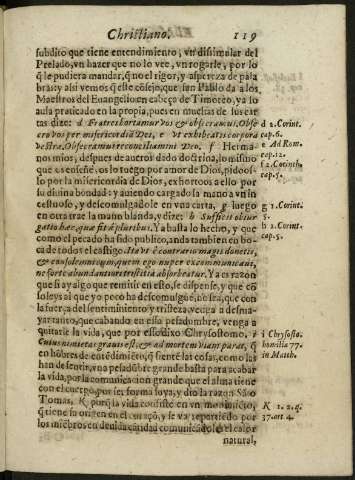 Christiano. 119
subdito que tiene entendimiento; vn dissimular del
Prelado, vn hazer que no lo vee, vn rogarle, por lo
q̃ le pudiera mandar, q̃ no el rigor, y aspereza de pala
bras; y asi vemos q̃ este cõsejo, que san Pablo da a los
Maestros del Euangelio en cabeça de Timoteo, ya lo
auia praticado en la propia, pues en muchas de sus car
tas dize: d Fratres hortamur vos & obsecramus, Obse
cro vos per misericordiã Dei, e vt exhibeatis corpora
vestra. Obsecramus reconciliamini Deo. f Herma-
nos mios, despues de aueros dado doctrina, lo mismo
que os enseñè, os lo ruego por amor de Dios, pidoos-
lo por la misericordia de Dios, exhortoos a ello por
su diuina bondad: y auiendo cargado la mano a vn in
cestuoso, y descomulgadole en vna carta, g luego
en otra trae la mano blanda, y dize: h Sufficit obiur
gatio hæc, quæ fit à pluribus. Ya basta lo hecho, y que
como el pecado ha sido publico, anda tambien en bo-
ca de todos el castigo. Ita vt è contrario magis donetis,
& consolemini eum, quem ego nuper excommunicaui,
ne forte abundantiori tristitia absorbeatur. Ya es razon
que si ay algo que remitir en esto, se dispense, y que cõ
soleys al que yo poco ha descomulguè, no sea, que con
la fuerça del sentimiento y tristeza, venga a desma-
yar tanto, que cabando en essa pesadumbre, venga a
quitarle la vida, que por esso dixo Chrysostomo, i
Cuius nimietas grauis est, & ad mortem viam parat, q̃
en hõbres de entẽdimiẽto, q̃ siente las cosas, como las
han de sentir, vna pesadũbre grande basta para acabar
la vida, por la comunicacion grande que el alma tiene
con el cuerpo, por ser forma suya, y dio la razon Sãto
Tomas, K porq̃ la vida consiste en vn mouimiẽto,
q̃ tiene su origen en el coraçõ, y se va repartiẽdo por
los miẽbros en deuida cãtidad comunicãdole el calor
natural,
d 2. Corint.
cap. 6.
e Ad Rom.
cap. 12.
f 2. Corinth.
cap. 5.
g 1. Corint.
5.
h 2. Corint.
cap.
i Chrysosto.
homilia 77.
in Matth.
K 1. 2. q.
37. art. 4.